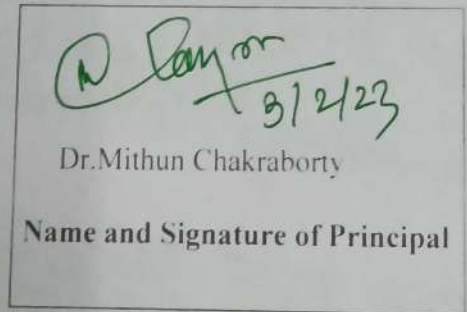 3/2/23
Dr.Mithun Chakraborty
Name and Signature of Principal